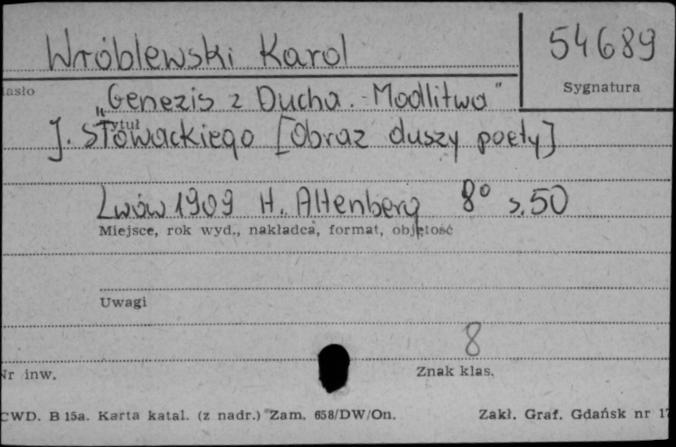 Wróblewski Karol
54689
Sygnatura
„Genezis z Ducha. - Modlitwa"
J. Słowackiego [Obraz duszy poety]
Lwów 1909 H. Altenberg 8° s. 50
Miejsce, rok wyd., nakładca, format, objętość
Uwagi
8
Nr inw.
Znak klas.
CWD. B 15a. Karta katal. (z nadr.) Zam. 658/DW/On.
Zakł. Graf. Gdańsk nr 17